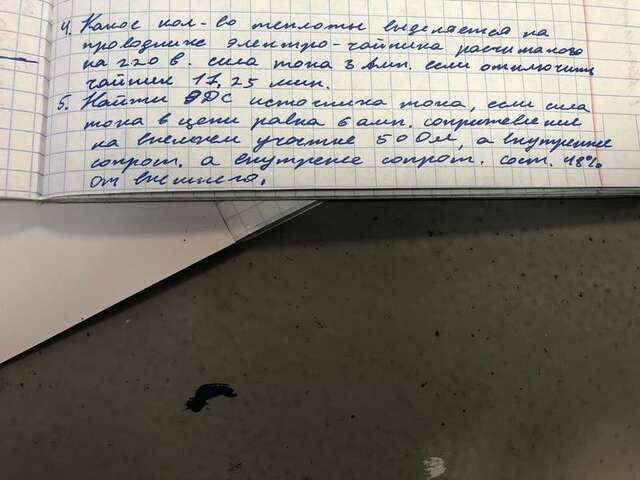 4. Какое кол-во теплоты выделяется на
проводнике электро-чайника расчитаного
на 220 в. сила тока 3 Амп. если отключить
чайник 17,25 мин.
5. Найти ЭДС источника тока, если сила
тока в цепи равна 6 амп. сопротевление
на внешнем участке 50 Ом, а внутренне
сопрот. а внутренне сопрот. сост. 18%
от внешнего.